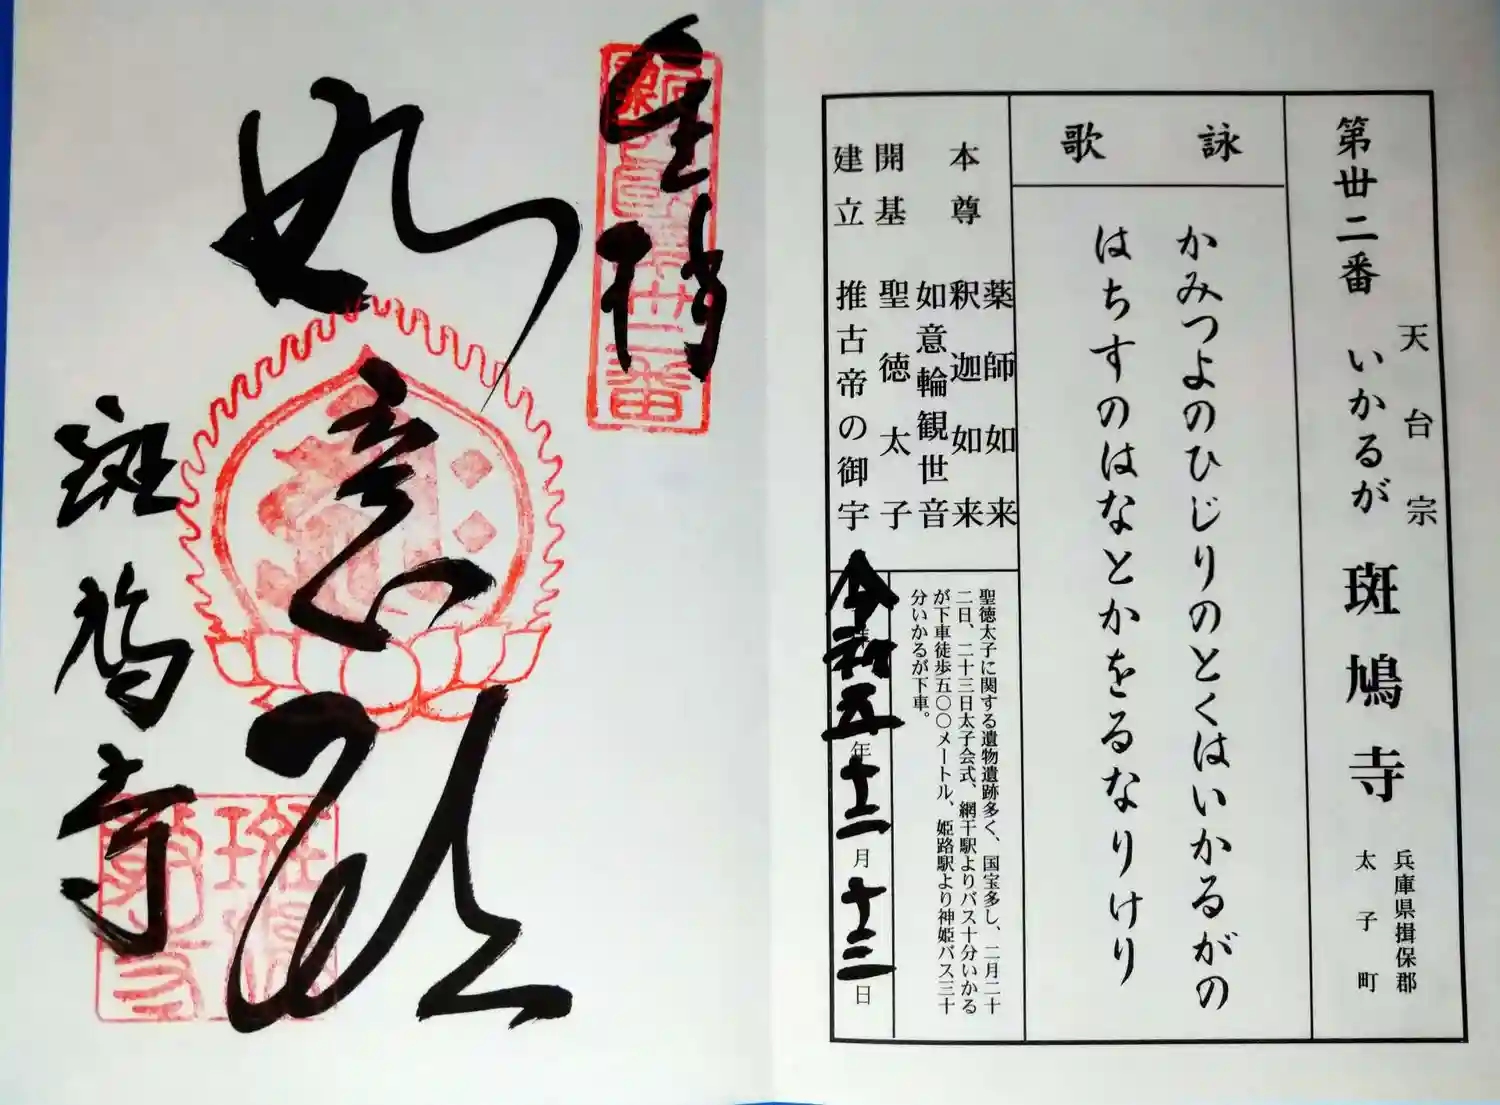 第丗二番
天台宗
いかるが
斑鳩寺
兵庫県揖保郡
太子町
詠歌
かみつよのひじりのとくはいかるがの
はちすのはなとかをるなりけり
本尊
薬師如来
釈迦如来
如意輪観世音
開基 聖徳太子
建立 推古帝の御宇
聖徳太子に関する遺物遺跡多く、国宝多し、二月二十
二日、二十三日太子会式、網干駅よりバス十分いかる
が下車徒歩五〇〇メートル、姫路駅より神姫バス三十
分いかるが下車。
令和五年十二月十三日
奉拝
如意輪
斑鳩寺